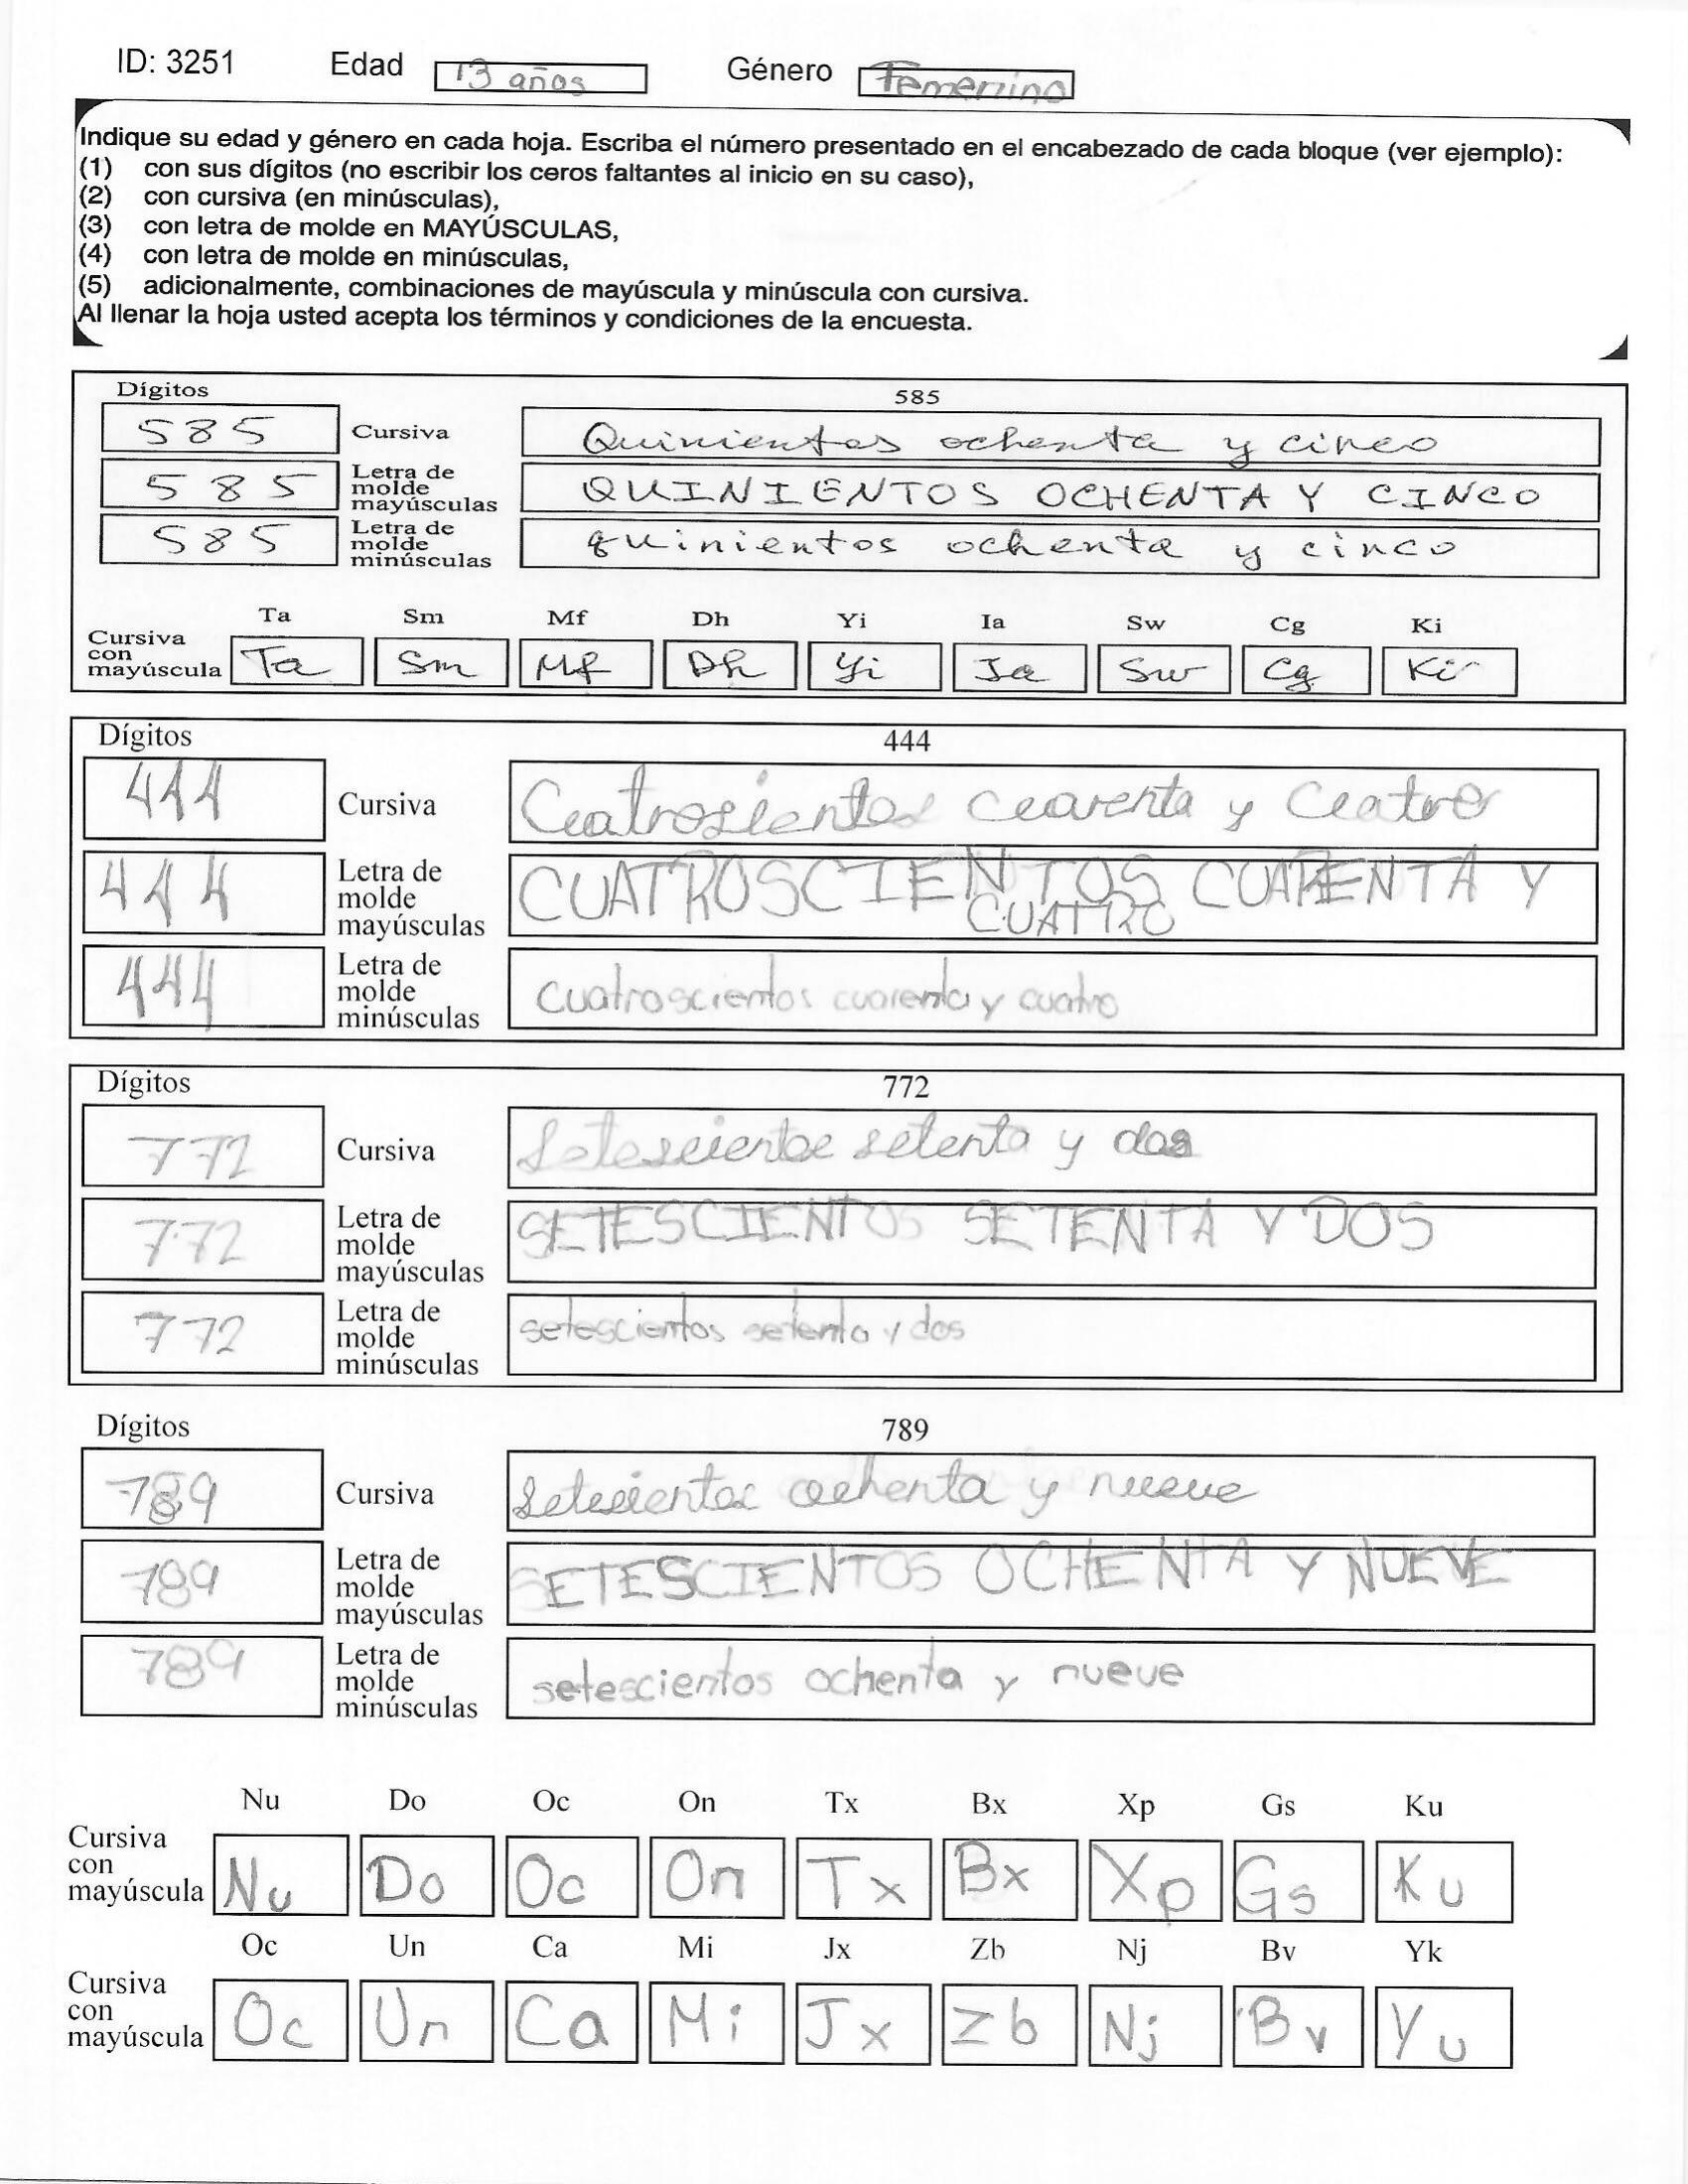 ID: 3251 Edad 13 años Género Femenino
Indique su edad y género en cada hoja. Escriba el número presentado en el encabezado de cada bloque (ver ejemplo):
(1) con sus dígitos (no escribir los ceros faltantes al inicio en su caso),
(2) con cursiva (en minúsculas),
(3) con letra de molde en MAYÚSCULAS,
(4) con letra de molde en minúsculas,
(5) adicionalmente, combinaciones de mayúscula y minúscula con cursiva.
Al llenar la hoja usted acepta los términos y condiciones de la encuesta.
Dígitos 585
585 Cursiva Quinientos ochenta y cinco
585 Letra de molde mayúsculas QUINIENTOS OCHENTA Y CINCO
585 Letra de molde minúsculas quinientos ochenta y cinco
Ta Sm Mf Dh Yi Ia Sw Cg Ki
Cursiva con mayúscula Ta Sm Mf Dh Yi Ia Sw Cg Ki
Dígitos 444
444 Cursiva Cuatrosientos cuarenta y Cuatro
444 Letra de molde mayúsculas CUATROSCIENTOS CUARENTA Y
CUATRO
444 Letra de molde minúsculas cuatroscientos cuarenta y cuatro
Dígitos 772
772 Cursiva Setescientos setenta y dos
772 Letra de molde mayúsculas SETESCIENTOS SETENTA Y DOS
772 Letra de molde minúsculas setescientos setenta y dos
Dígitos 789
789 Cursiva Setescientos ochenta y nueve
789 Letra de molde mayúsculas SETESCIENTOS OCHENTA Y NUEVE
789 Letra de molde minúsculas setescientos ochenta y nueve
Nu Do Oc On Tx Bx Xp Gs Ku
Cursiva con mayúscula Nu Do Oc On Tx Bx Xp Gs Ku
Oc Un Ca Mi Jx Zb Nj Bv Yk
Cursiva con mayúscula Oc Un Ca Mi Jx Zb Nj Bv Yu